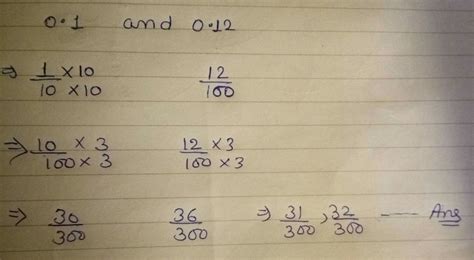 0.1 and 0.12
⇒ 1/10 × 10/10 12/100
⇒ 10/100 × 3/3 12/100 × 3/3
⇒ 30/300 36/300 ⇒ 31/300, 32/300 ---- Ans